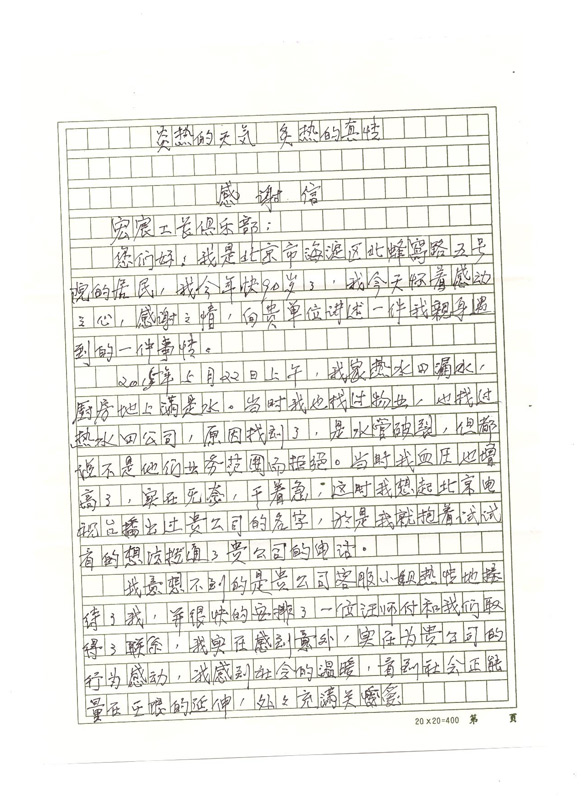 炎热的天气 炙热的真情
感谢信
宏宸工长俱乐部：
您们好！我是北京市海淀区北蜂窝路五号
院的居民，我今年快90岁了，我今天怀着感动
之心，感谢之情，向贵单位讲述一件我亲身遇
到的一件事情。
2015年5月22日上午，我家热水四漏水，
厨房地上满是水。当时我也找过物业，也找过
热水四公司，原因找到了，是水管破裂，但都
说不是他们业务范围而拒绝。当时我血压也增
高了，实在无奈，干着急；这时我想起北京电
视台播出过贵公司的名字，于是我就抱着试试
看的想法拨通了贵公司的电话。
我意想不到的是贵公司客服小姐热情地接
待了我，并很快的安排了一位汪师付和我们取
得了联系，我实在感到意外，实在为贵公司的
行为感动，我感到社会的温暖，看到社会正能
量在正暖的延伸，处处充满关爱
20×20=400 第 頁